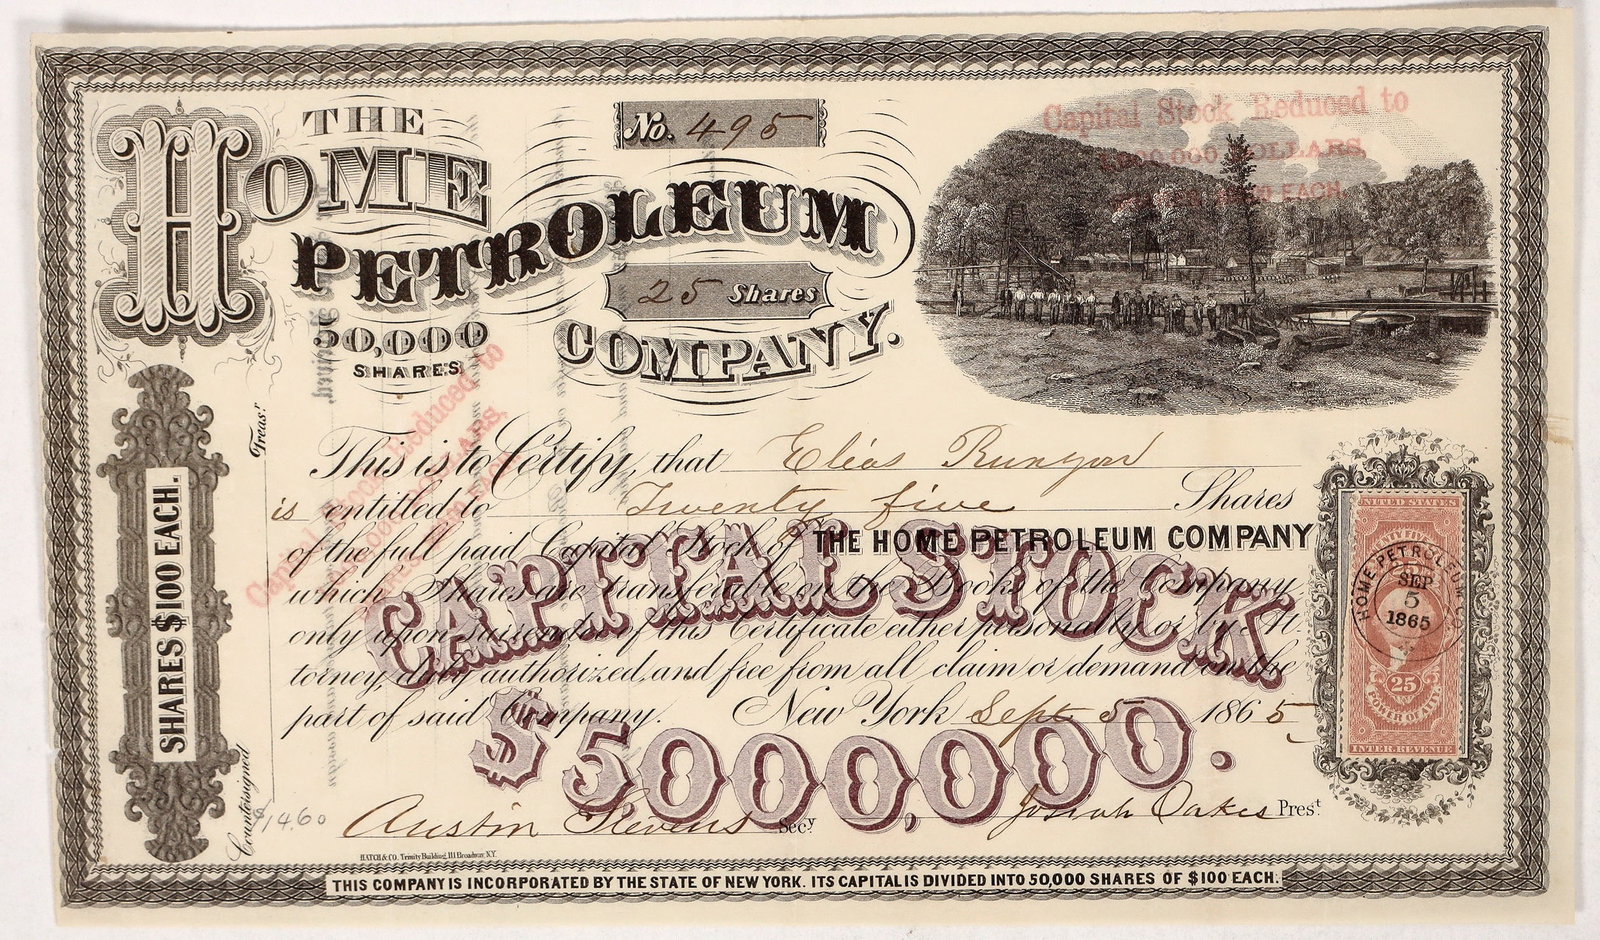 THE
HOME
PETROLEUM
COMPANY.
No. 495
25 Shares
50,000
SHARES
Capital Stock Reduced to
DOLLARS
EACH
Capital Stock Reduced to
SHARES $100 EACH.
Treasr
Countersigned
$14.60
This is to Certify, that Elias Runyon
is entitled to Twenty five Shares
of the full paid Capital Stock of THE HOME PETROLEUM COMPANY
which Shares are transferable on the Books of the Company
only upon surrender of this Certificate either personally or by At-
torney, duly authorized, and free from all claim or demand on the
part of said Company. New York Sept 5 1865
CAPITAL STOCK
$5,000,000.
Austin Stevens Secy
Josiah Oakes Prest
UNITED STATES
HOME PETROLEUM CO.
SEP
5
1865
25
POWER OF ATTY.
INTER. REVENUE
HATCH & CO. Trinity Building, 111 Broadway, N.Y.
THIS COMPANY IS INCORPORATED BY THE STATE OF NEW YORK. ITS CAPITAL IS DIVIDED INTO 50,000 SHARES OF $100 EACH.